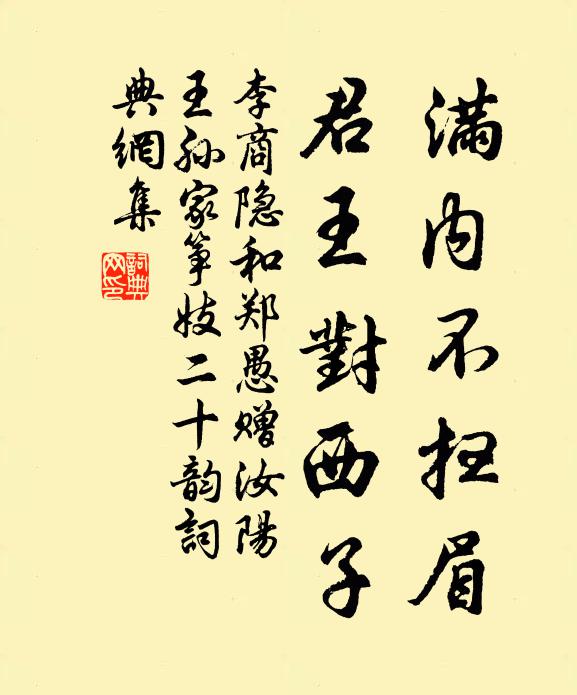 滿內不扫眉
君王對西子
李商隐和郑愚赠汝陽
王孙家筝妓二十韵詞
典網集
詞典網印